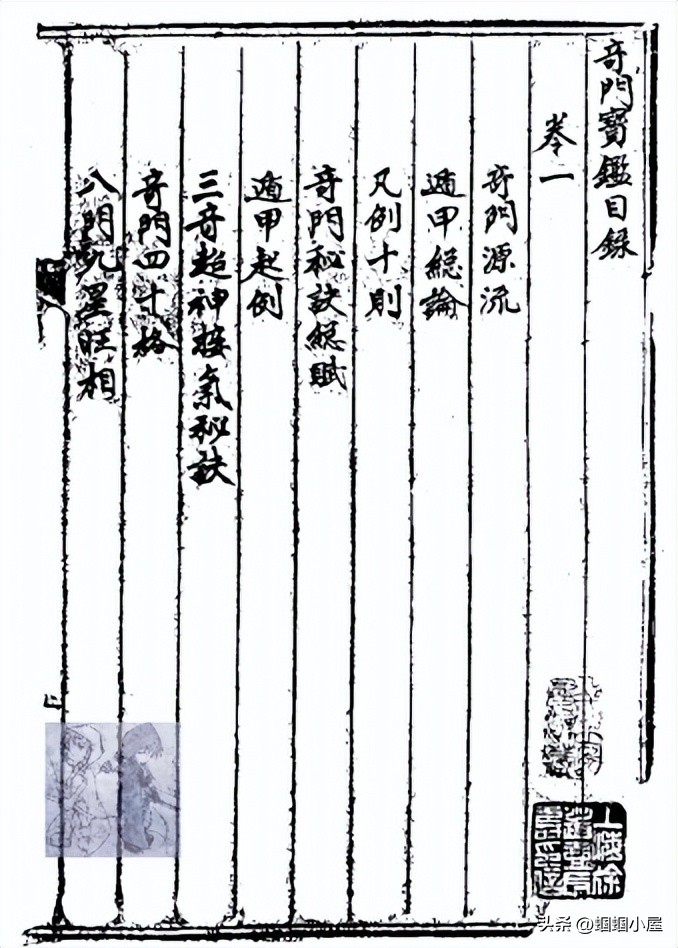 奇門寶鑑目錄
卷一
奇門源流
遁甲總論
凡例十則
奇門秘訣總賦
遁甲起例
三奇超神接氣秘訣
奇門四十格
八門九星旺相
头条 @蝈蝈小屋